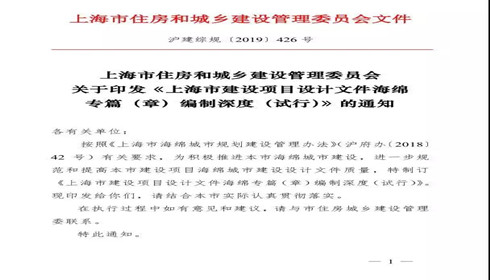 上海市住房和城乡建设管理委员会文件
沪建综规〔2019〕426 号
上海市住房和城乡建设管理委员会
关于印发《上海市建设项目设计文件海绵
专篇（章）编制深度（试行）》的通知
各有关单位：
按照《上海市海绵城市规划建设管理办法》（沪府办〔2018〕
42 号）有关要求，为积极推进本市海绵城市建设，进一步规
范和提高本市建设项目海绵城市建设设计文件质量，特制订
《上海市建设项目设计文件海绵专篇（章）编制深度（试行）》。
现印发给你们，请结合本市实际认真贯彻落实。
在执行过程中如有意见和建议，请与市住房城乡建设管理
委联系。
特此通知。
— 1 —